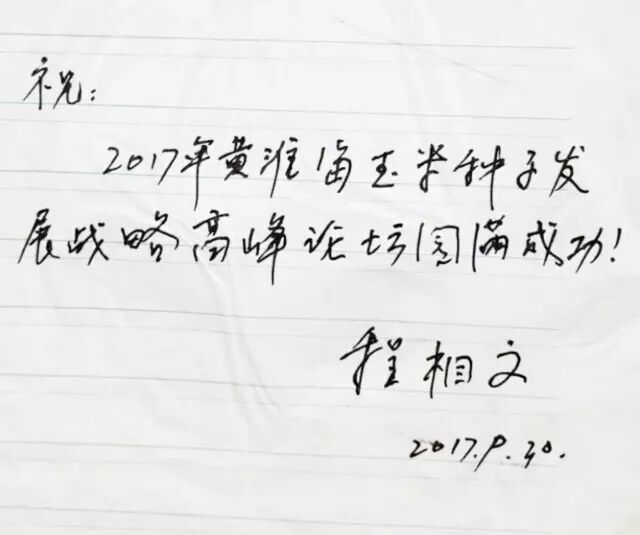 祝:
2017年黄淮海玉米种子发
展战略高峰论坛圆满成功!
程相文
2017.9.30.